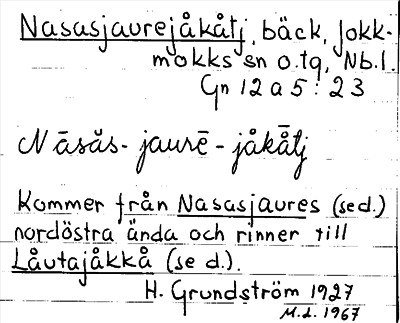 Nasasjaurejåkåtj, bäck, Jokk-
mokks sn o. tg, Nb. l.
Gn 12 a 5 : 23
Năsăs - jaurē - jåkåtj
Kommer från Nasasjaures (se d.)
nordöstra ända och rinner till
Låutajåkkå (se d.).
H. Grundström 1927
M.d. 1967